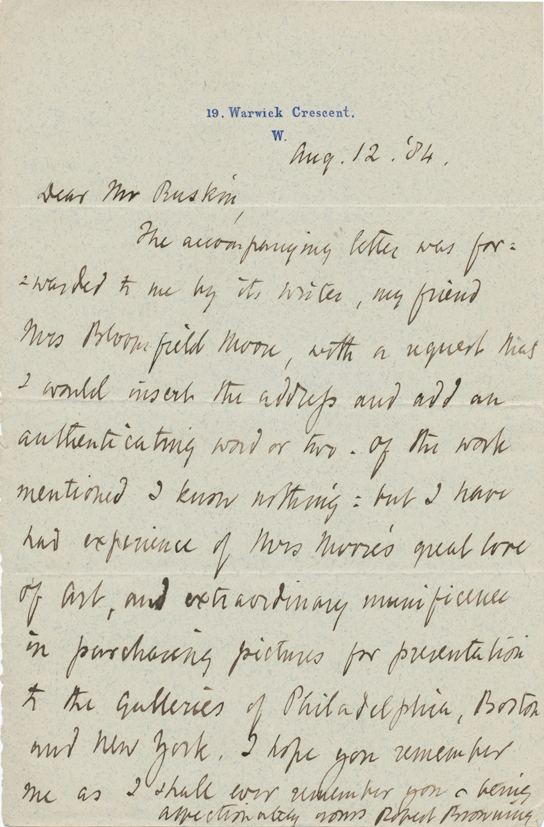 19. Warwick Crescent.
W.
Aug. 12. '84.
Dear Mr Ruskin,
The accompanying letter was for=
=warded to me by its writer, my friend
Mrs Bloomfield Moore, with a request that
I would insert the address and add an
authenticating word or two. Of the work
mentioned I know nothing: but I have
had experience of Mrs Moore's great love
of Art, and extraordinary munificence
in purchasing pictures for presentation
to the Galleries of Philadelphia, Boston
and New York. I hope you remember
me as I shall ever remember you – being
affectionately yours Robert Browning.